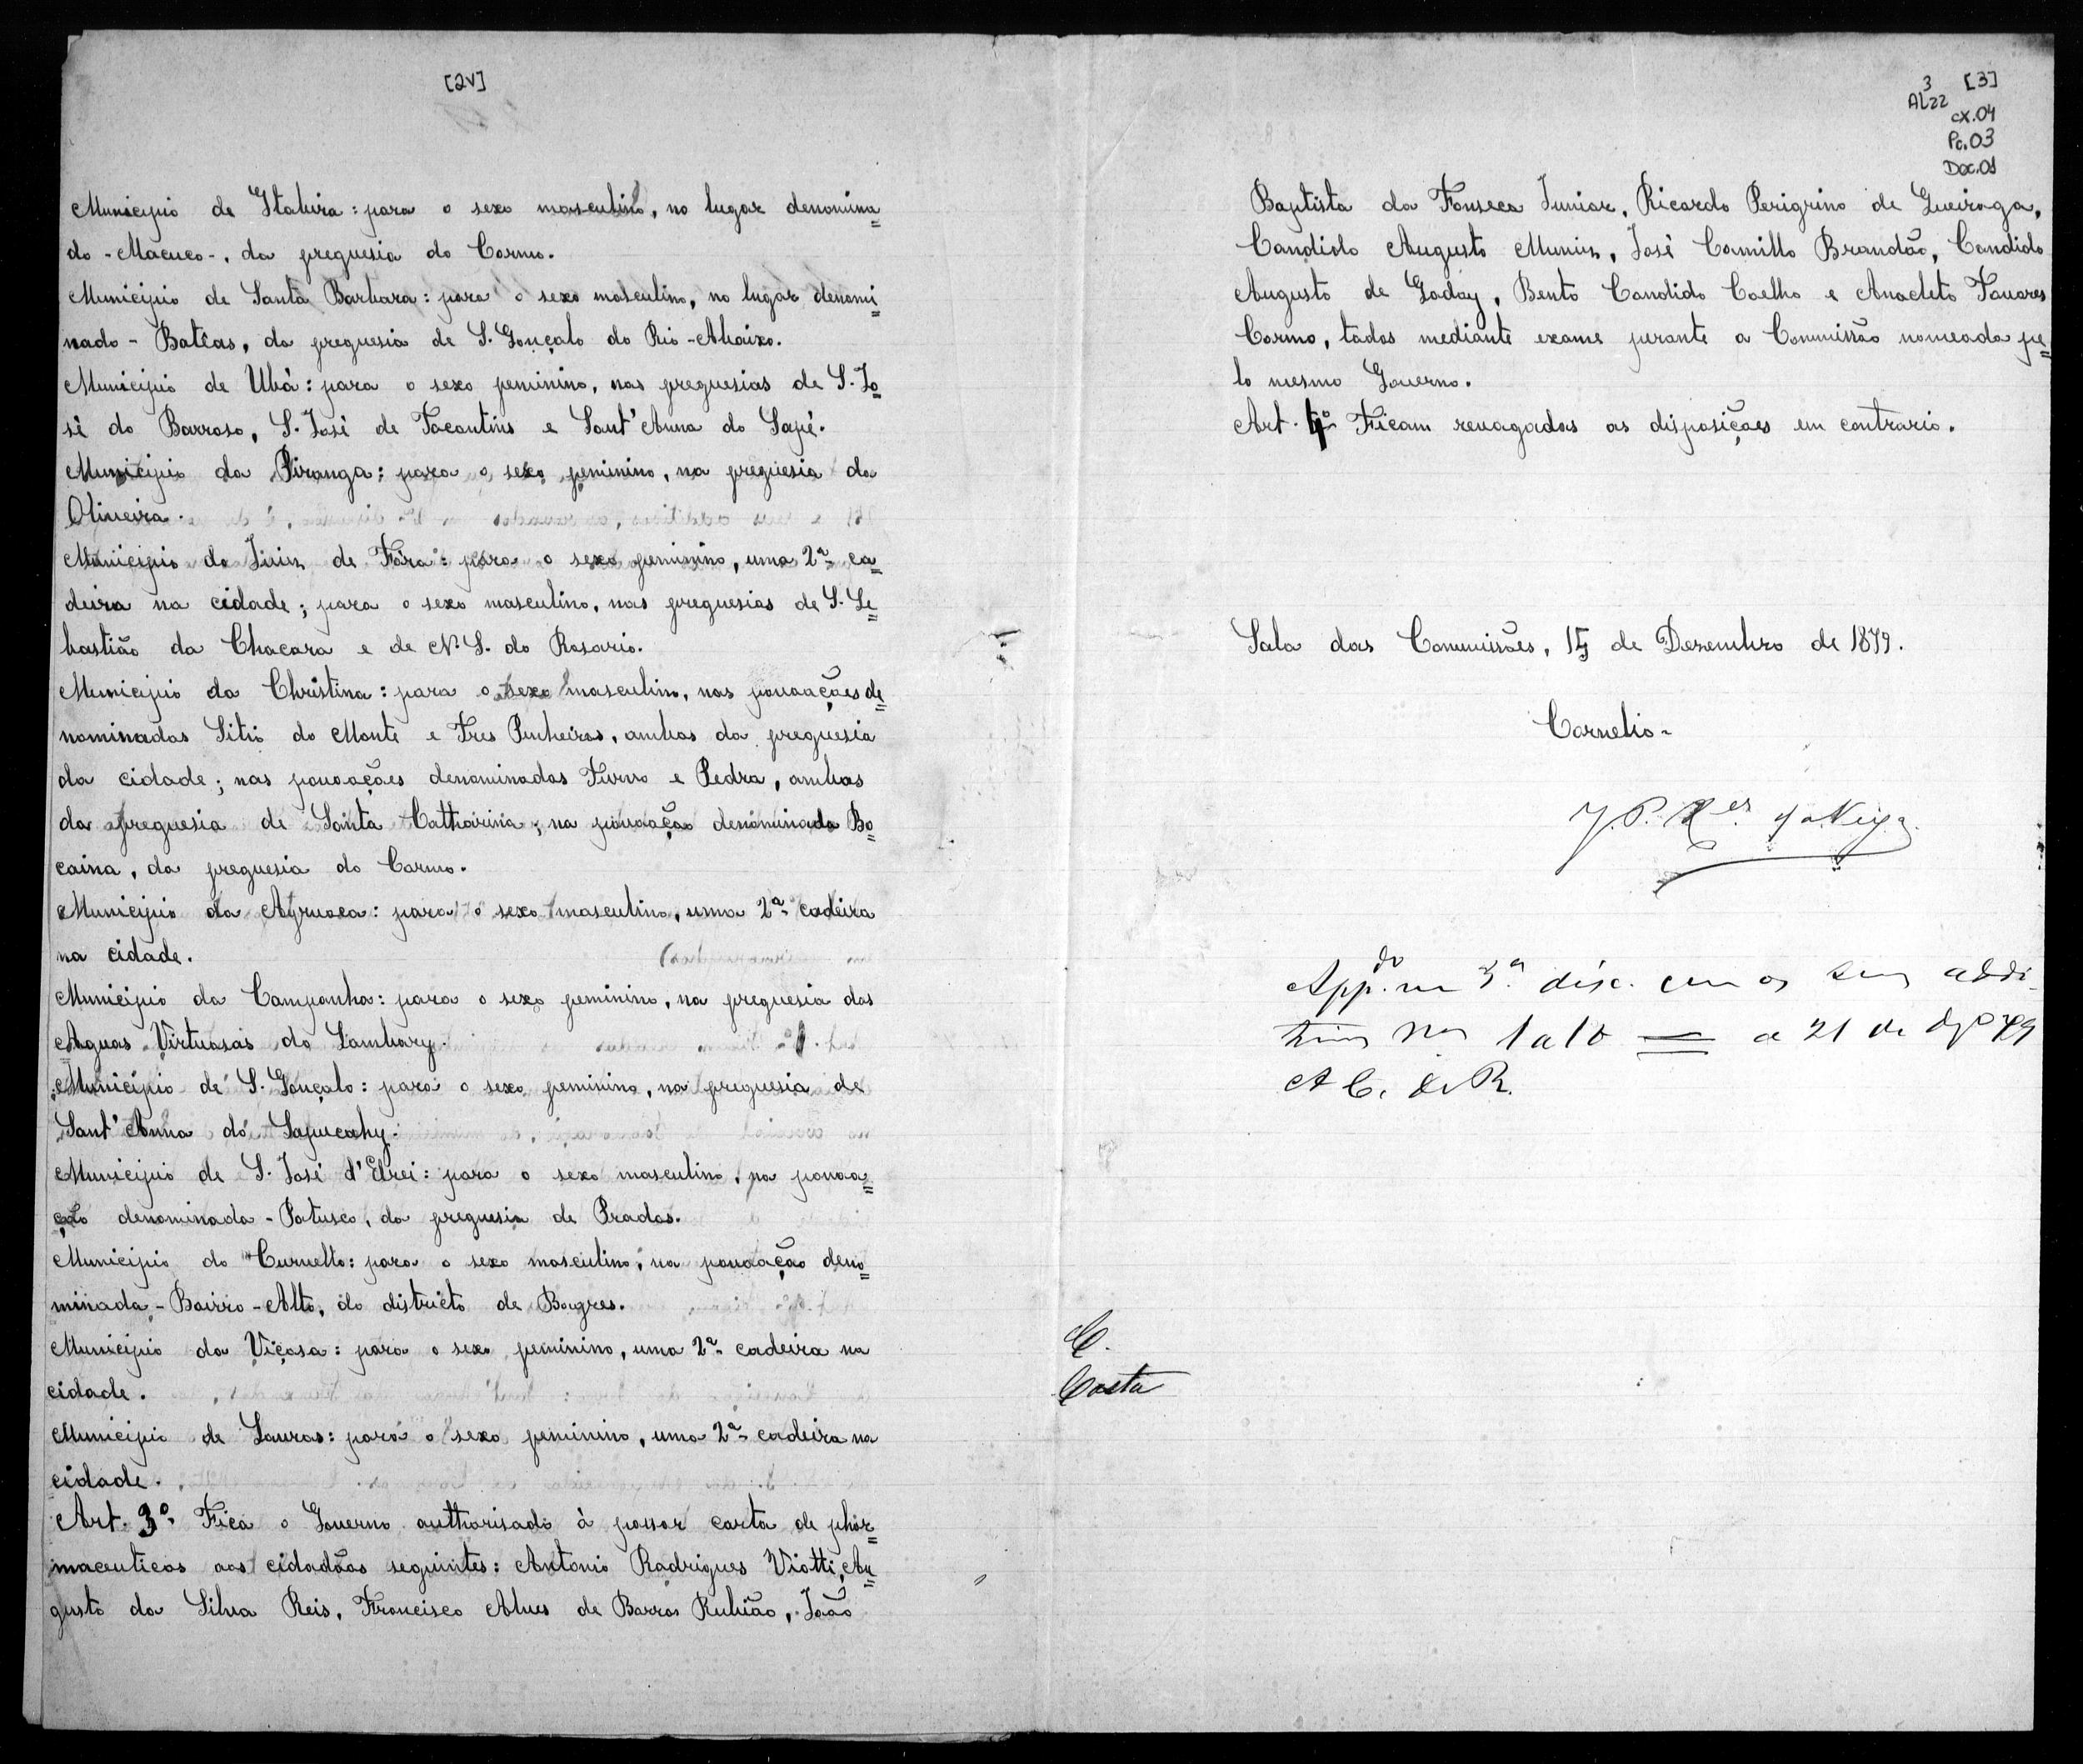 [2v]
Municipio de Itabira: para o sexo masculino, no lugar denomina=
do - Macuco -, da freguesia do Carmo.
Municipio de Santa Barbara: para o sexo masculino, no lugar denomi=
nado - Batêas, da freguesia de S. Gonçalo do Rio - Abaixo.
Municipio de Ubá: para o sexo feminino, nas freguesias de S. Jo=
sé do Barroso, S. José de Tocantins e Sant'Anna do Sapé.
Municipio da Piranga: para o sexo feminino, na freguesia da
Oliveira.
Municipio do Juiz de Fóra: para o sexo feminino, uma 2ª ca=
deira na cidade; para o sexo masculino, nas freguesias de S. Se=
bastião da Chacara e de N. S. do Rosario.
Municipio da Christina: para o sexo masculino, nas povoações de=
nominadas Sitio do Monte e Tres Pinheiros, ambas da freguesia
da cidade; nas povoações denominadas Turvo e Pedra, ambas
da freguesia de Santa Catharina; na povoação denominada Bo=
caina, da freguesia do Carmo.
Municipio da Ayruoca: para o sexo masculino, uma 2ª cadeira
na cidade.
Municipio da Campanha: para o sexo feminino, na freguesia das
Aguas Virtuosas do Lambary.
Municipio de S. Gonçalo: para o sexo feminino, na freguesia de
Sant'Anna do Sapucahy.
Municipio de S. José d'Elrei: para o sexo masculino, na povoa=
ção denominada - Patusco, da freguesia de Prados.
Municipio do Curvello: para o sexo masculino, na povoação deno=
minada - Bairro - Alto, do districto de Bagres.
Municipio da Viçosa: para o sexo feminino, uma 2ª cadeira na
cidade.
Municipio de Lavras: para o sexo feminino, uma 2ª cadeira na
cidade.
Art. 3º Fica o Governo authorisado à passar carta de phar=
maceuticos aos cidadãos seguintes: Antonio Rodrigues Viotti, Au=
gusto da Silva Reis, Francisco Alves de Barros Rubião, João
3 [3]
AL22
cx.04
Pc.03
Doc.01
Baptista da Fonseca Junior, Ricardo Perigrino de Queiroga,
Candido Augusto Muniz, José Camillo Brandão, Candido
Augusto de Godoy, Bento Candido Coelho e Anacleto Tavares
Carmo, todos mediante exame perante a Commissão nomeada pe=
lo mesmo Governo.
Art. 4º Ficam revogadas as disposições em contrario.
Sala das Commissões, 15 de Dezembro de 1879.
Cornelio -
J. P. X.er da Veiga
App.do em 3ª disc. com os seus addi
tivos nos 1 a 10 = a 21 de dzº 79
A C. de R.
C.
Costa